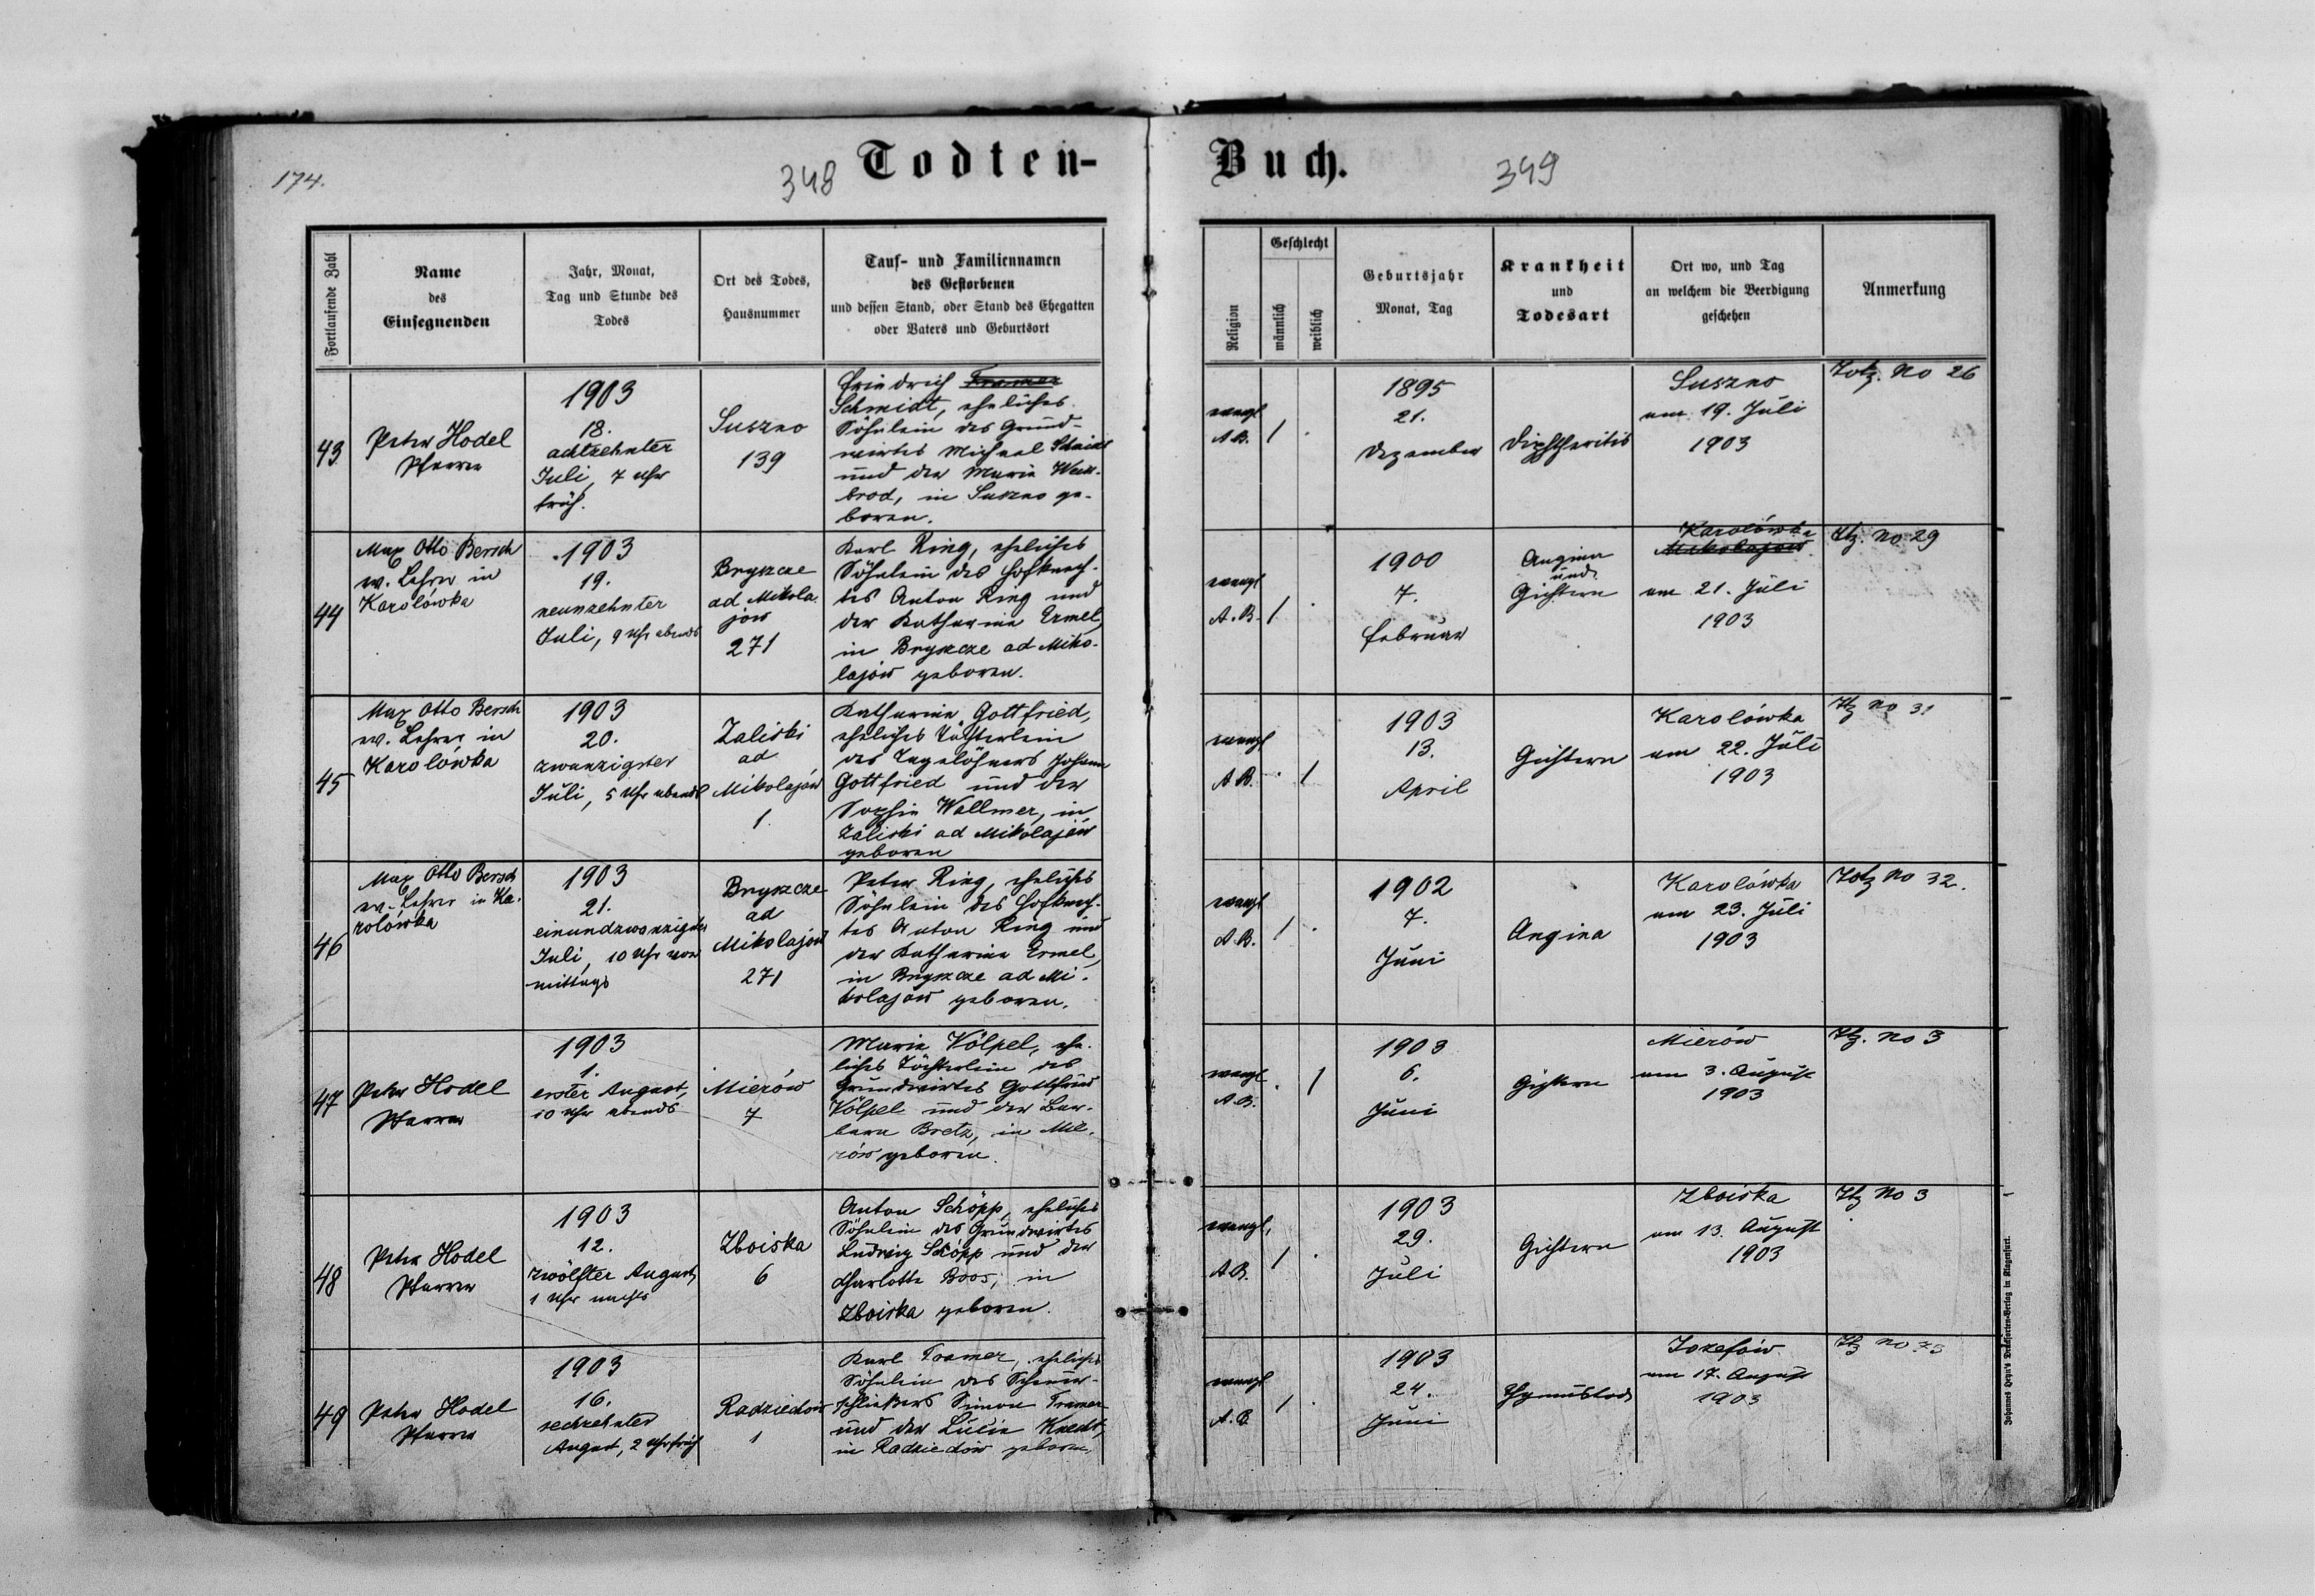 174.
348
Todten-
Fortlaufende Zahl
Name
des
Einsegnenden
Jahr, Monat,
Tag und Stunde des
Todes
Ort des Todes,
Hausnummer
Tauf- und Familiennamen
des Gestorbenen
und dessen Stand, oder Stand des Ehegatten
oder Vaters und Geburtsort
43
Peter Hodel
Pfarrer
1903
18.
achtzehnter
Juli, 7 Uhr
früh.
Suszno
139
Friedrich Tramer
Schmidt, eheliches
Söhnlein des Grund-
wirtes Michael Schmidt
und der Maria
brod, in Suszno ge-
boren.
44
Max Otto Bersch
ev. Lehrer in
Karolówka
1903
19.
neunzehnter
Juli, 9 Uhr abends
Bryszcze
ad Mikola-
jow
271
Karl Ring, eheliches
Söhnlein des Hofknech-
tes Anton Ring und
der Katharina Ermel,
in Bryszcze ad Miko-
lajów geboren.
45
Max Otto Bersch
ev. Lehrer in
Karolówka
1903
20.
zwanzigster
Juli, 5 Uhr abends
Zaliski
ad
Mikolajów
1.
Katharina Gottfried,
eheliches Töchterlein
des Tagelöhners Johann
Gottfried und der
Sophie Wollmer, in
Zaliski ad Mikolajów
geboren
46
Max Otto Bersch
ev. Lehrer in Ka-
rolówka
1903
21.
einundzwanzigster
Juli, 10 Uhr vor
mittags
Bryszcze
ad
Mikolajów
271
Peter Ring, eheliches
Söhnlein des Hofknech-
tes Anton Ring und
der Katharina Ermel,
in Bryszcze ad Mi-
kolajów geboren.
47
Peter Hodel
Pfarrer
1903
1.
erster August,
10 Uhr abends
Mierów
7
Maria Völpel, ehe-
liches Töchterlein des
Grundwirtes Gottfried
Völpel und der Bar-
bara Bretz, in Mie-
rów geboren.
48
Peter Hodel
Pfarrer
1903
12.
zwölfter August,
1 Uhr nachts
Zboiska
6
Anton Schöpp, eheliches
Söhnlein des Grundwirtes
Ludwig Schöpp und der
Charlotte Boos, in
Zboiska geboren.
49
Peter Hodel
Pfarrer
1903
16.
sechzehnter
August, 2 Uhr früh
Radziechów
1
Karl Tramer, eheliches
Söhnlein des
schließers Simon Tramer
und der Lucie Knecht,
in Radziechów geboren.
Buch.
349
Religion
Geschlecht
männlich
weiblich
Geburtsjahr
Monat, Tag
Krankheit
und
Todesart
Ort wo, und Tag
an welchem die Beerdigung
geschehen
Anmerkung
evangl
A.B.
1
1895
21.
Dezember
Diphtheritis
Suszno
am 19. Juli
1903
Totz. No 26
evangl
A.B.
1
1900
7.
Februar
Angina
und
Gichtern
Karolówka
Mikolajów
am 21. Juli
1903
Ttz. No 29
evangl
A.B.
1
1903
13.
April
Gichtern
Karolówka
am 22. Juli
1903
Ttz No 31
evangl
A.B.
1
1902
7.
Juni
Angina
Karolówka
am 23. Juli
1903
Totz No 32.
evangl
A.B.
1
1903
6.
Juni
Gichtern
Mierów
am 3. August
1903
Ttz. No 3
evangl,
A.B.
1
1903
29.
Juli
Gichtern
Zboiska
am 13. August
1903
Ttz No 3
evangl
A.B
1
1903
24.
Juni
Thymustod
Józefów
am 17. August
1903
Ttz No
Johannes Heyn's Drucksorten-Verlag in Klagenfurt.